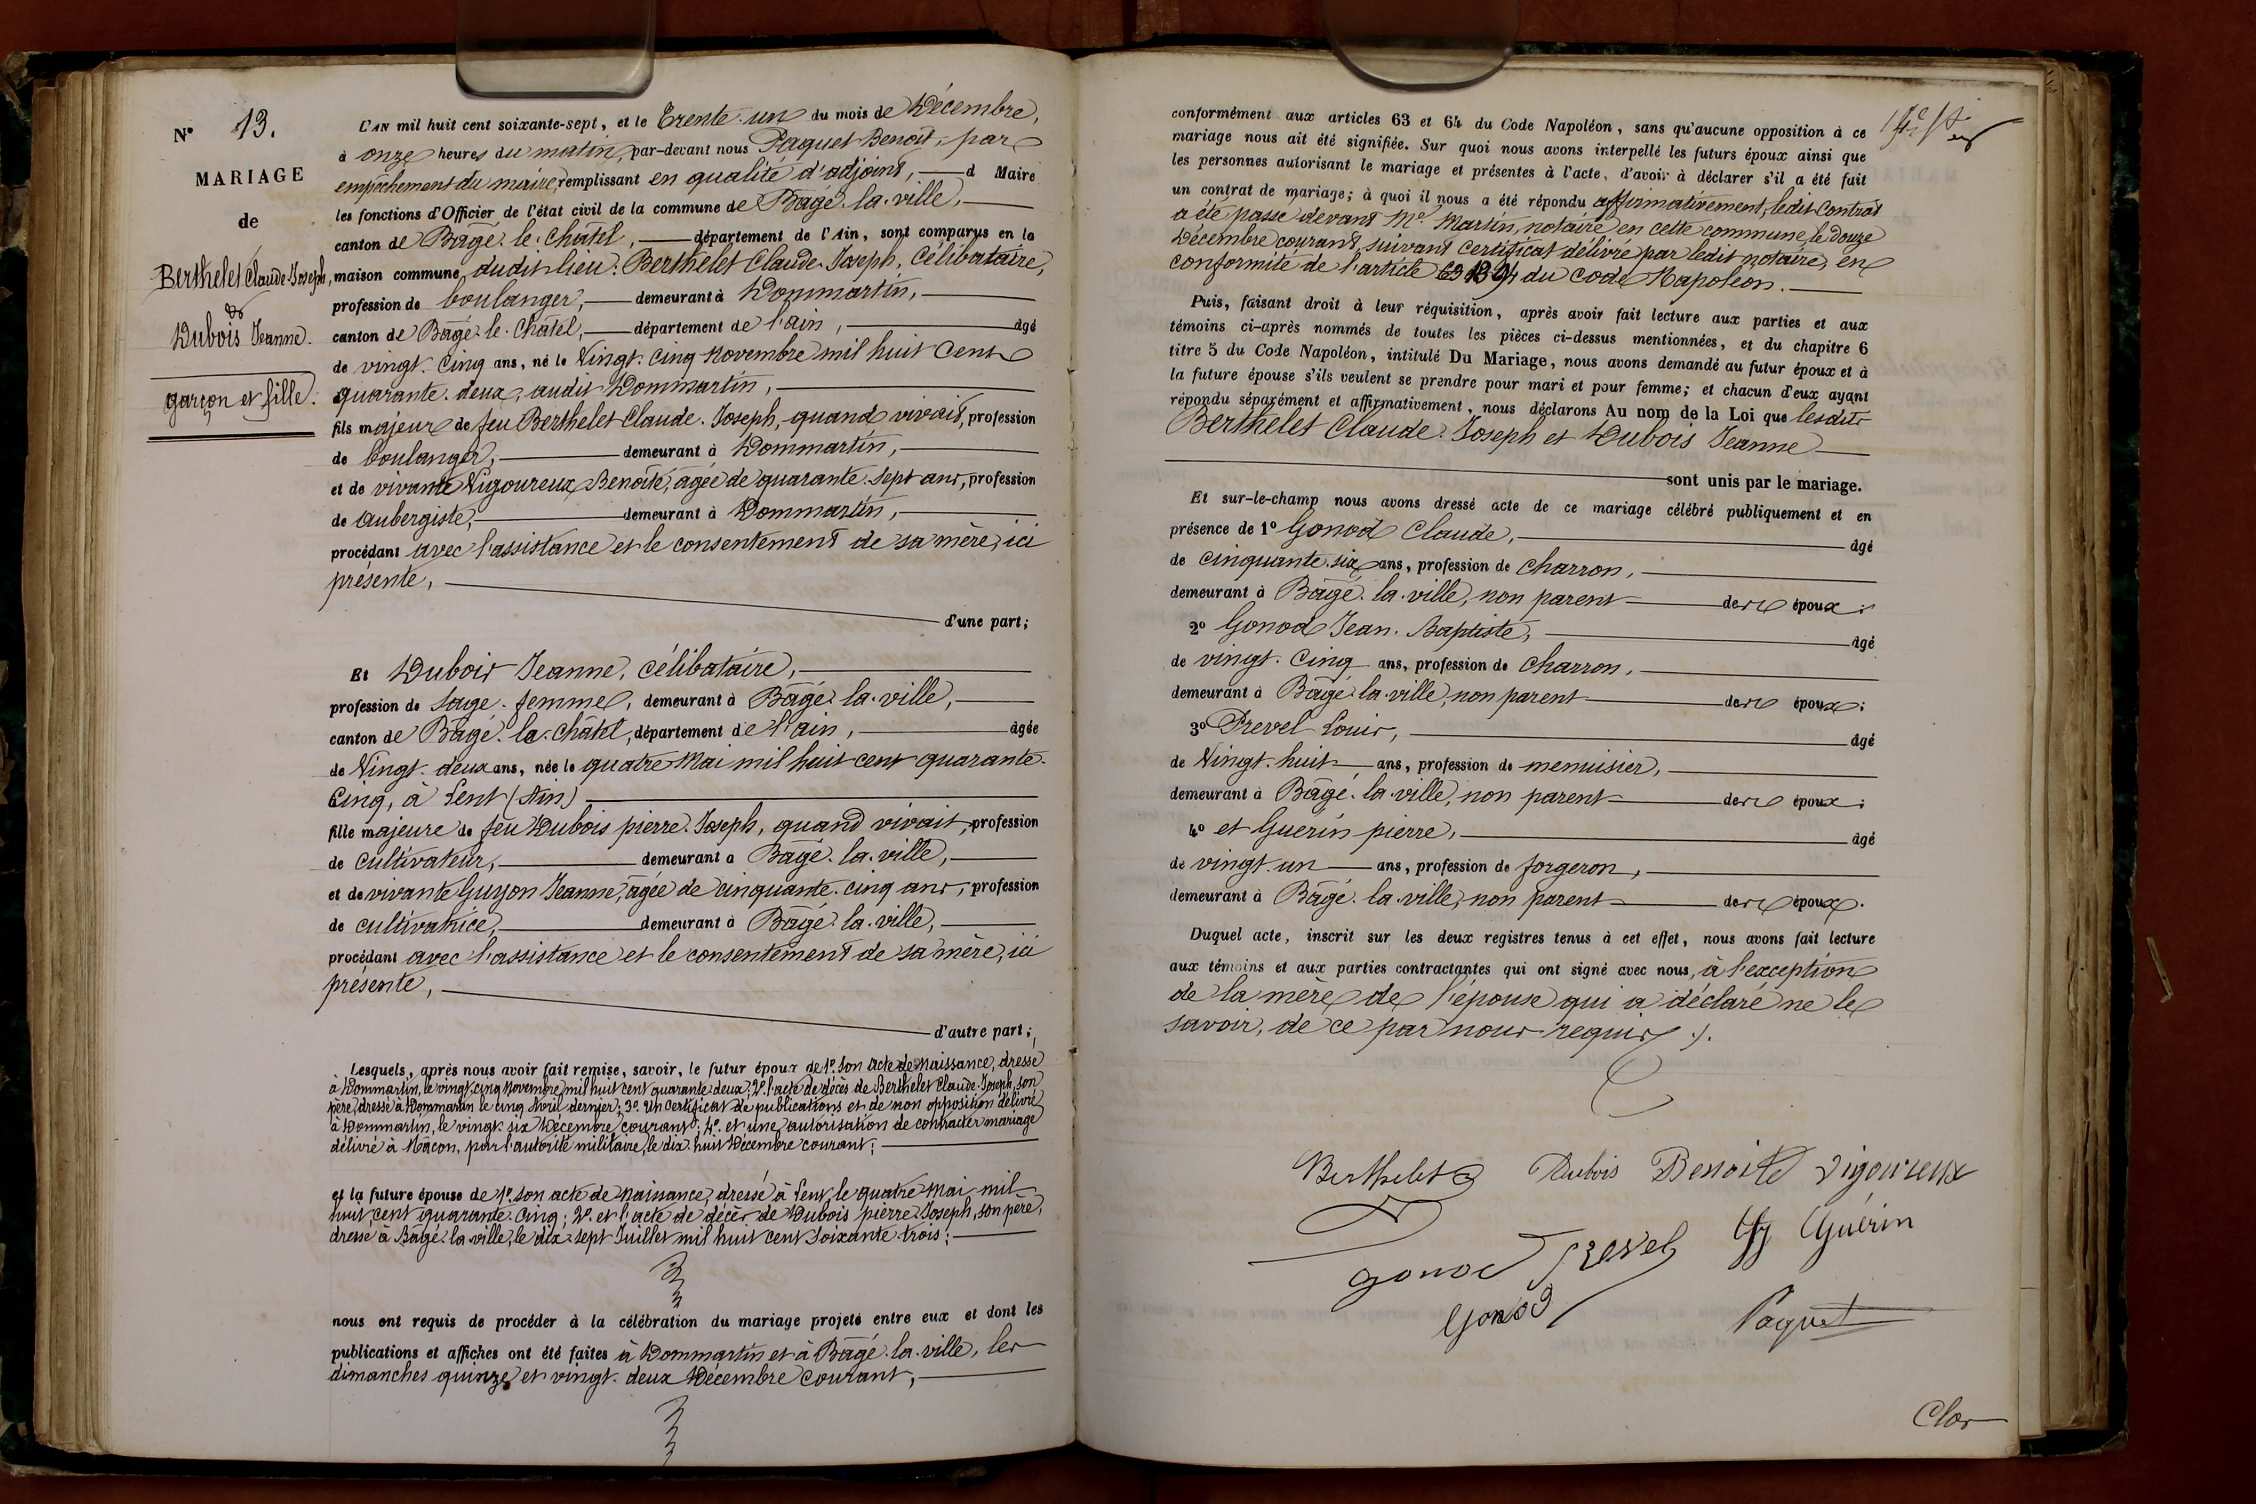 N° 13.
MARIAGE
de
Berthelet Claude-Joseph,
&
Dubois Jeanne.
garçon et fille.
L'AN mil huit cent soixante-sept, et le Trente-un du mois de Décembre,
à onze heures du matin, par-devant nous Paquet Benoît, par
empêchement du maire, remplissant en qualité d'adjoint, d Maire
les fonctions d'Officier de l'état civil de la commune de Bâgé-la-ville,
canton de Bâgé-le-Châtel, département de l'Ain, sont comparus en la
maison commune dudit lieu: Berthelet Claude-Joseph, Célibataire,
profession de boulanger, demeurant à Dommartin,
canton de Bâgé-le-Châtel, département de l'ain, âgé
de vingt-cinq ans, né le Vingt-cinq Novembre mil huit cent
quarante-deux, audit Dommartin,
fils majeur de feu Berthelet Claude-Joseph, quand vivait, profession
de boulanger, demeurant à Dommartin,
et de vivante Vigoureux Benoîte, âgée de quarante-sept ans, profession
de Aubergiste, demeurant à Dommartin,
procédant avec l'assistance et le consentement de sa mère, ici
présente,
d'une part;
Et Dubois Jeanne, célibataire,
profession de sage-femme, demeurant à Bâgé-la-ville,
canton de Bâgé-le-Châtel, département de l'ain, âgée
de Vingt-deux ans, née le quatre Mai mil huit cent quarante-
Cinq, à Lent (Ain)
fille majeure de feu Dubois pierre-Joseph, quand vivait, profession
de cultivateur, demeurant à Bâgé-la-ville,
et de vivante Guyon Jeanne, âgée de cinquante-cinq ans, profession
de cultivatrice, demeurant à Bâgé-la-ville,
procédant avec l'assistance et le consentement de sa mère, ici
présente,
d'autre part;
Lesquels, après nous avoir fait remise, savoir, le futur époux de 1° son acte de Naissance, dressé
à Dommartin, le vingt-cinq Novembre mil huit cent quarante-deux; 2° l'acte de décès de Berthelet Claude-Joseph, son
père, dressé à Dommartin le cinq Avril dernier; 3° un certificat de publications et de non opposition délivré
à Dommartin, le vingt-six Décembre courant; 4° et une autorisation de contracter mariage
délivré à Mâcon, par l'autorité militaire, le dix-huit Décembre courant;
et la future épouse de 1° son acte de Naissance, dressé à Lent, le quatre Mai mil
huit cent quarante-cinq; 2° et l'acte de décès de Dubois pierre-Joseph, son père,
dressé à Bâgé-la-ville, le dix-sept Juillet mil huit cent soixante-trois;
nous ont requis de procéder à la célébration du mariage projeté entre eux et dont les
publications et affiches ont été faites à Dommartin et à Bâgé-la-ville, les
dimanches quinze et vingt-deux Décembre courant,
conformément aux articles 63 et 64 du Code Napoléon, sans qu'aucune opposition à ce
mariage nous ait été signifiée. Sur quoi nous avons interpellé les futurs époux ainsi que
les personnes autorisant le mariage et présentes à l'acte, d'avoir à déclarer s'il a été fait
un contrat de mariage; à quoi il nous a été répondu affirmativement, ledit Contrat
a été passé devant Me Martin, notaire en cette commune, le douze
Décembre courant, suivant certificat délivré par ledit notaire, en
conformité de l'article 1394 du code Napoléon.
Puis, faisant droit à leur réquisition, après avoir fait lecture aux parties et aux
témoins ci-après nommés de toutes les pièces ci-dessus mentionnées, et du chapitre 6
titre 5 du Code Napoléon, intitulé Du Mariage, nous avons demandé au futur époux et à
la future épouse s'ils veulent se prendre pour mari et pour femme; et chacun d'eux ayant
répondu séparément et affirmativement, nous déclarons Au nom de la Loi que lesdits
Berthelet Claude-Joseph et Dubois Jeanne
sont unis par le mariage.
Et sur-le-champ nous avons dressé acte de ce mariage célébré publiquement et en
présence de 1° Gonod Claude, âgé
de cinquante-six ans, profession de Charron,
demeurant à Bâgé-la-ville, non parent des époux;
2° Gonod Jean-Baptiste, âgé
de vingt-cinq ans, profession de Charron,
demeurant à Bâgé-la-ville, non parent des époux;
3° Prevel Louis, âgé
de Vingt-huit ans, profession de menuisier,
demeurant à Bâgé-la-ville, non parent des époux;
4° et Guerin pierre, âgé
de vingt-un ans, profession de forgeron,
demeurant à Bâgé-la-ville, non parent des époux.
Duquel acte, inscrit sur les deux registres tenus à cet effet, nous avons fait lecture
aux témoins et aux parties contractantes qui ont signé avec nous, à l'exception
de la mère de l'épouse qui a déclaré ne le
savoir, de ce par nous requis.
Berthelet Dubois Benoite Vigoureux
Gonod Prevel Guérin
Gonod Paquet
Clos